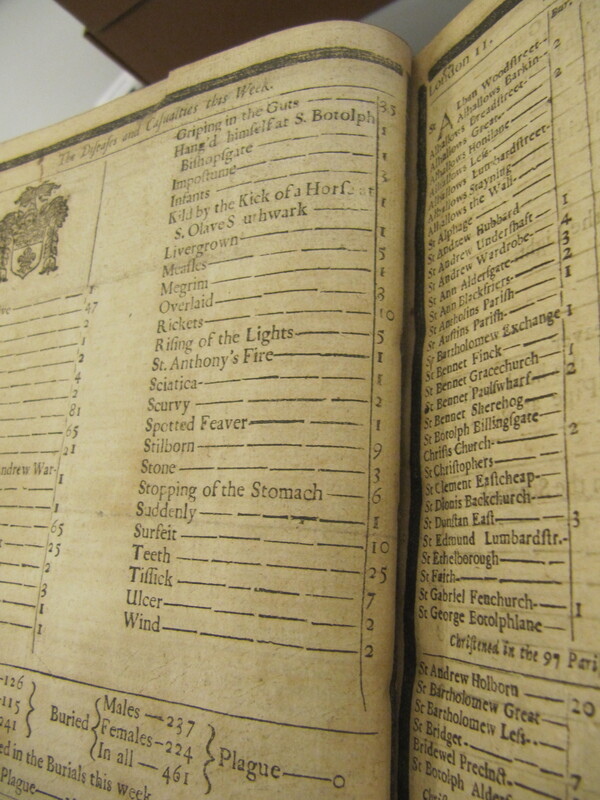 The Diſeaſes and Caſualties this Week.
47
2
1
2
4
2
81
65
21
ndrew War- 1
1
65
25
2
3
1
1
Griping in the Guts 35
Hang'd himſelf at S. Botolph
Biſhopſgate 1
Impoſtume 1
Infants 3
Kild by the Kick of a Horſe at
S. Olave S uthwark 1
Livergrown 1
Meaſles 5
Megrim 1
Overlaid 3
Rickets 10
Riſing of the Lights 5
St. Anthony's Fire 1
Sciatica 1
Scurvy 2
Spotted Feaver 1
Stilborn 9
Stone 3
Stopping of the Stomach 6
Suddenly 1
Surfeit 10
Teeth 25
Tiſſick 7
Ulcer 2
Wind 2
-126
-115
241
Buried
Males — 237
Females — 224
In all — 461
Plague — 0
ed in the Burials this week
Plague
London 11.
St Alban Woodſtreet
Alhallows Barkin
Alhallows Breadſtreet
Alhallows Great
Alhallows Honilane
Alhallows Leſs
Alhallows Lumbardſtreet
Alhallows Stayning
Alhallows the Wall
St Alphage 1
St Andrew Hubbard
St Andrew Underſhaft 4
St Andrew Wardrobe 3
St Ann Alderſgate 2
St Ann Blackfriers 1
St Antholins Pariſh
St Auſtins Pariſh
St Bartholomew Exchange 1
St Bennet Finck
St Bennet Gracechurch 1
St Bennet Paulſwharf 2
St Bennet Sherehog
St Botolph Billingſgate
Chriſts Church 2
St Chriſtophers
St Clement Eaſtcheap
St Dionis Backchurch
St Dunſtan Eaſt 3
St Edmund Lumbardſtr.
St Ethelborough
St Faith
St Gabriel Fenchurch 1
St George Botolphlane
Chriſtened in the 97 Pari
St Andrew Holborn 20
St Bartholomew Great
St Bartholomew Leſs
St Bridget
Bridewel Precinct 7
St Botolph Alderſ